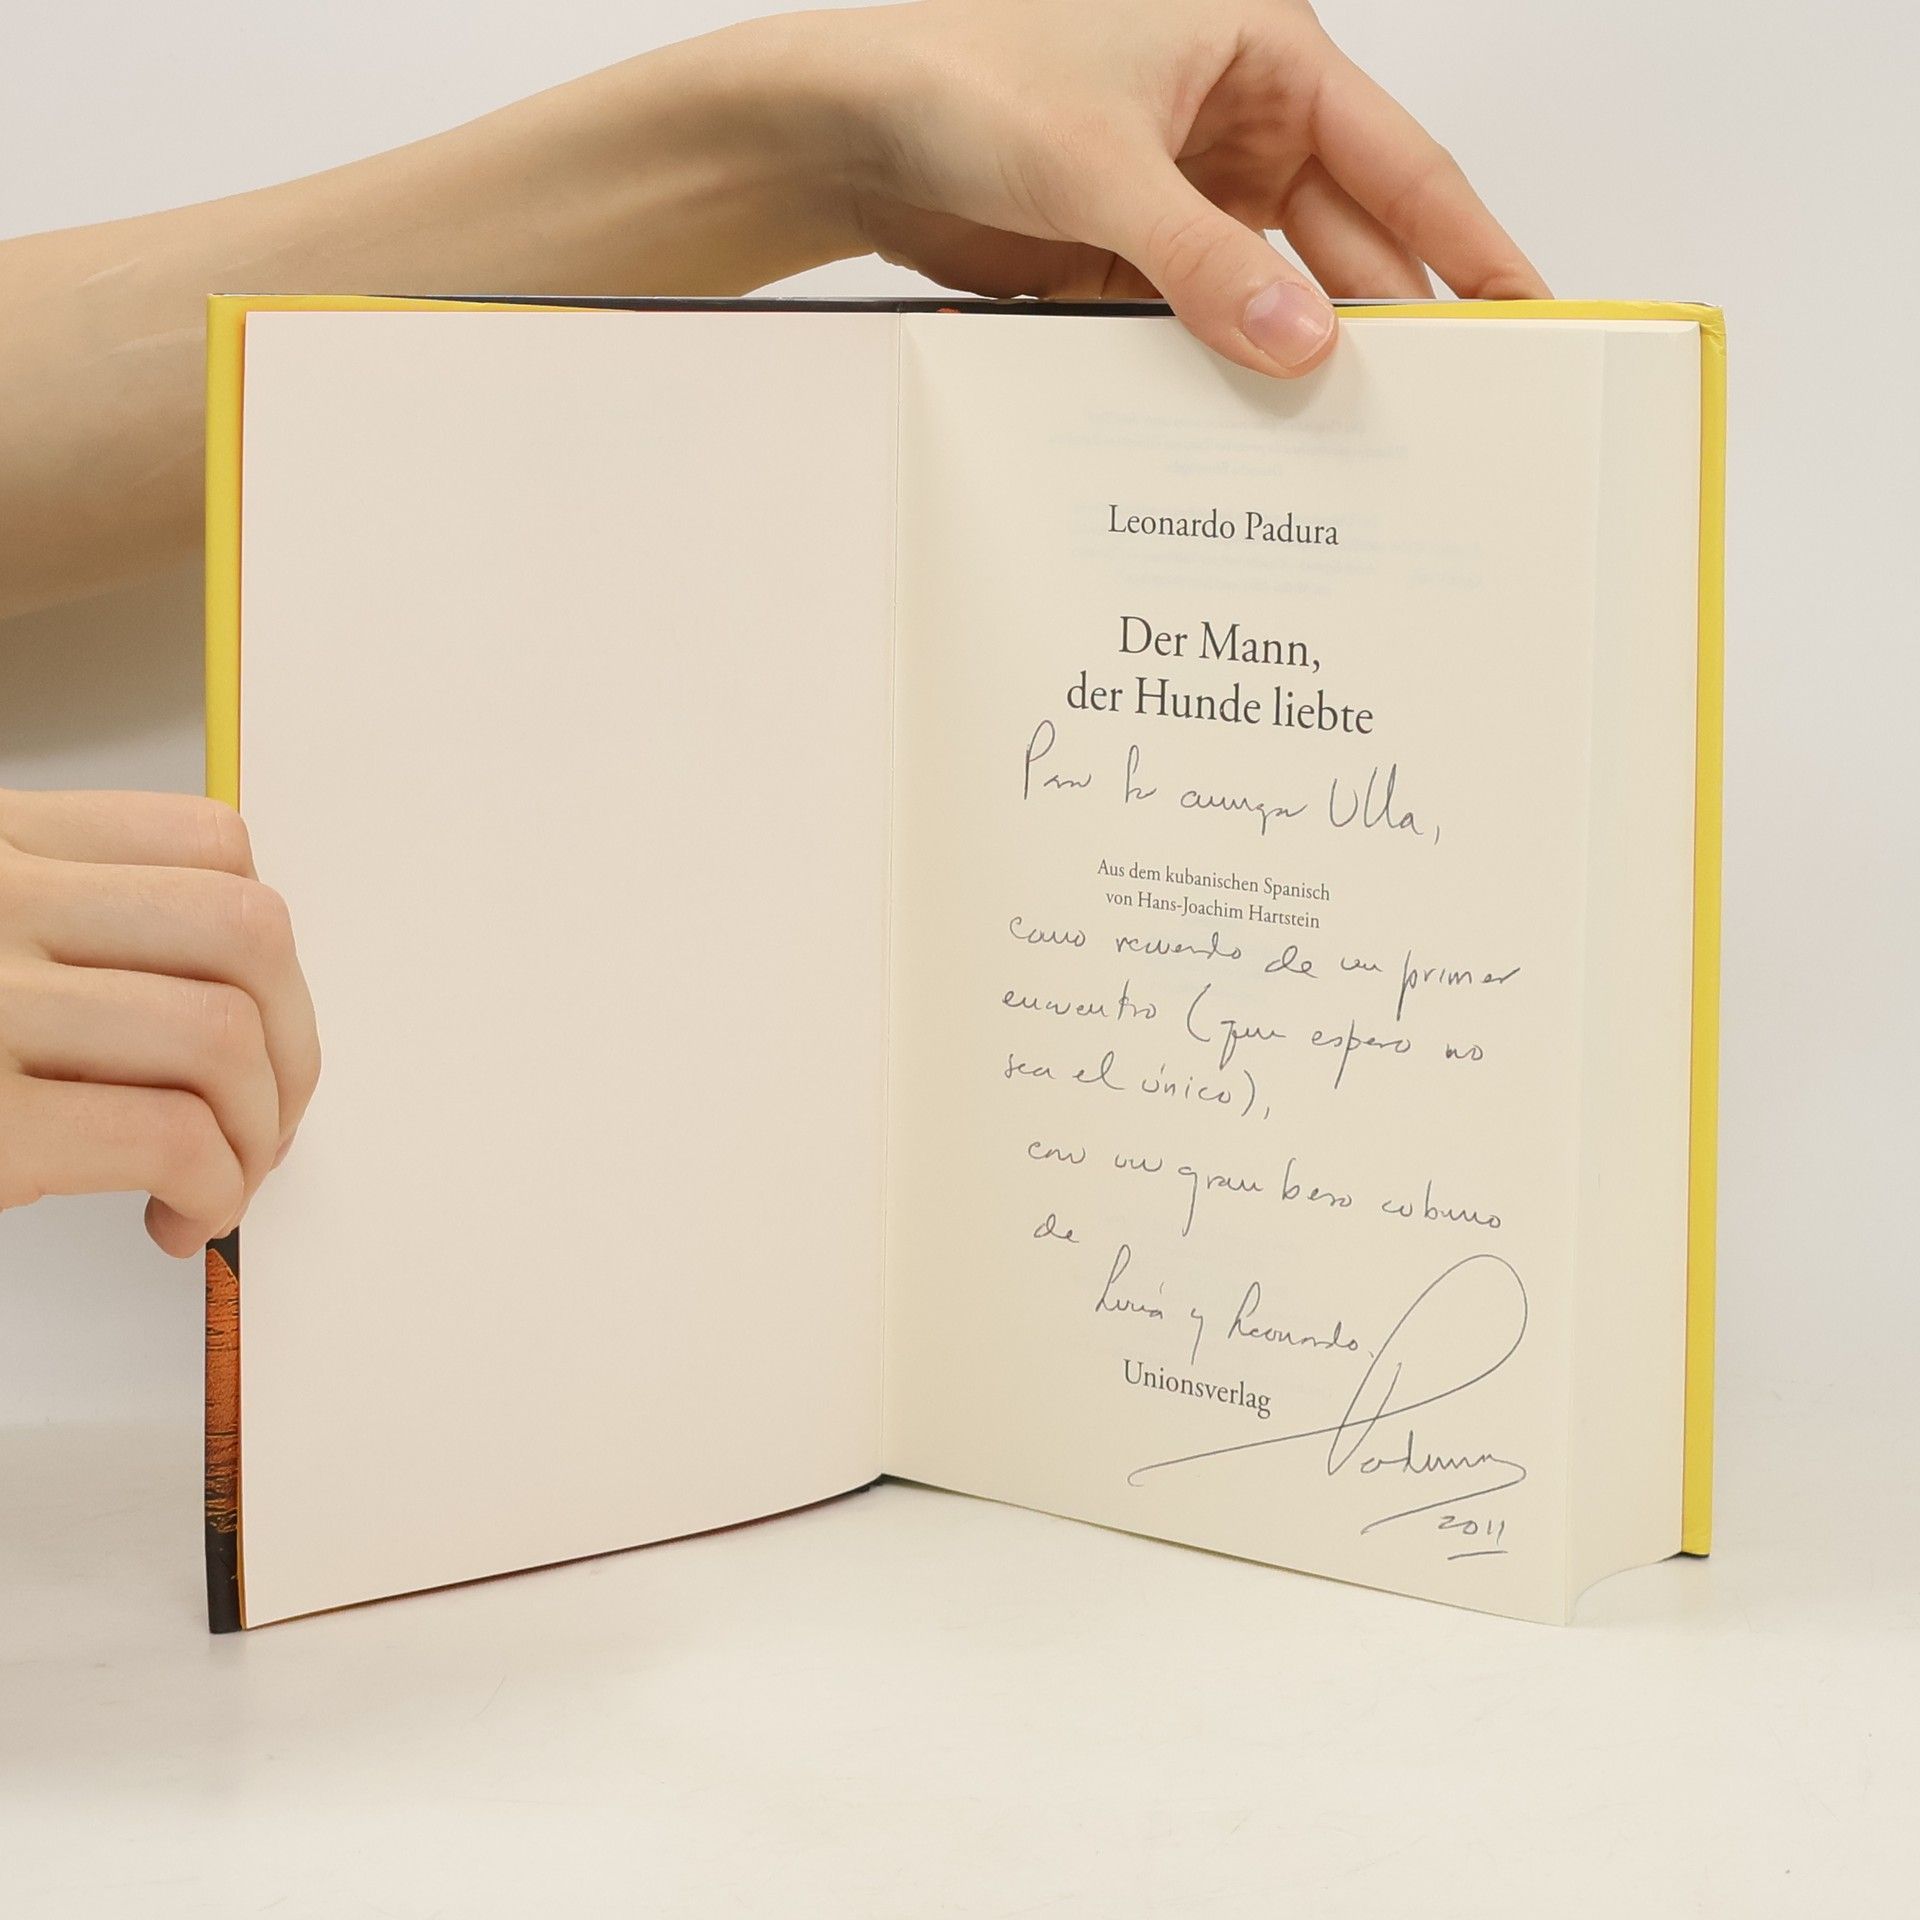 Leonardo Padura
Der Mann,
der Hunde liebte
Para la amiga Ulla,
Aus dem kubanischen Spanisch
von Hans-Joachim Hartstein
como recuerdo de un primer
encuentro (que espero no
sea el único),
con un gran beso cubano
de
Lucía y Leonardo.
Unionsverlag
Padura
2011